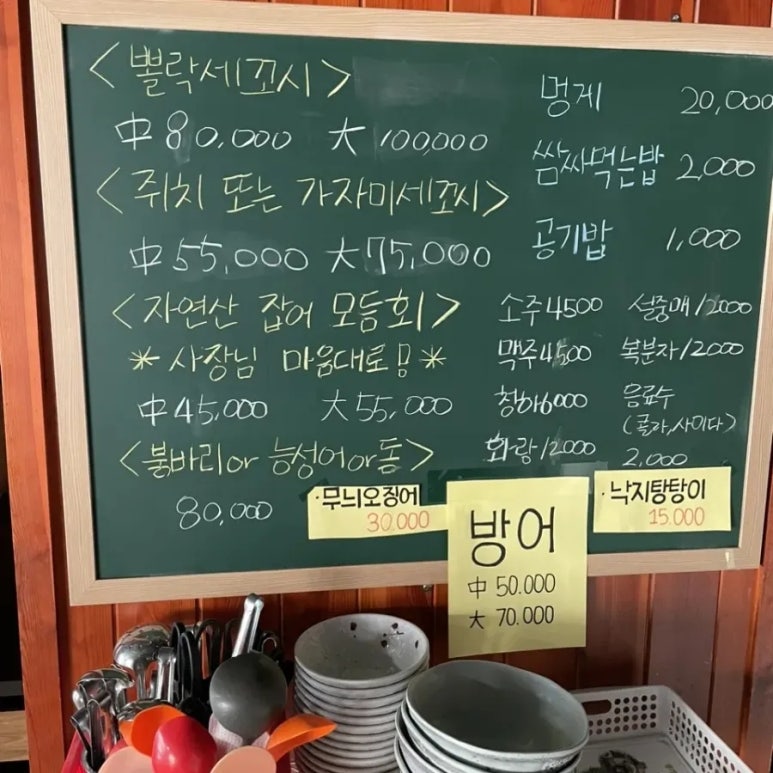 <뽈락세꼬시>
中 80,000 大 100,000
<쥐치 또는 가자미세꼬시>
中 55,000 大 75,000
<자연산 잡어 모듬회>
*사장님 마음대로*
中 45,000 大 55,000
<붉바리or 능성어or돔>
80,000
멍게 20,000
쌈싸먹는밥 2,000
공기밥 1,000
소주 4500 설중매 12000
맥주 4500 복분자 12000
청하 6000 음료수
(콜라,사이다)
화랑 12000 2,000
·무늬오징어
30.000
방어
中 50.000
大 70.000
·낙지탕탕이
15.000